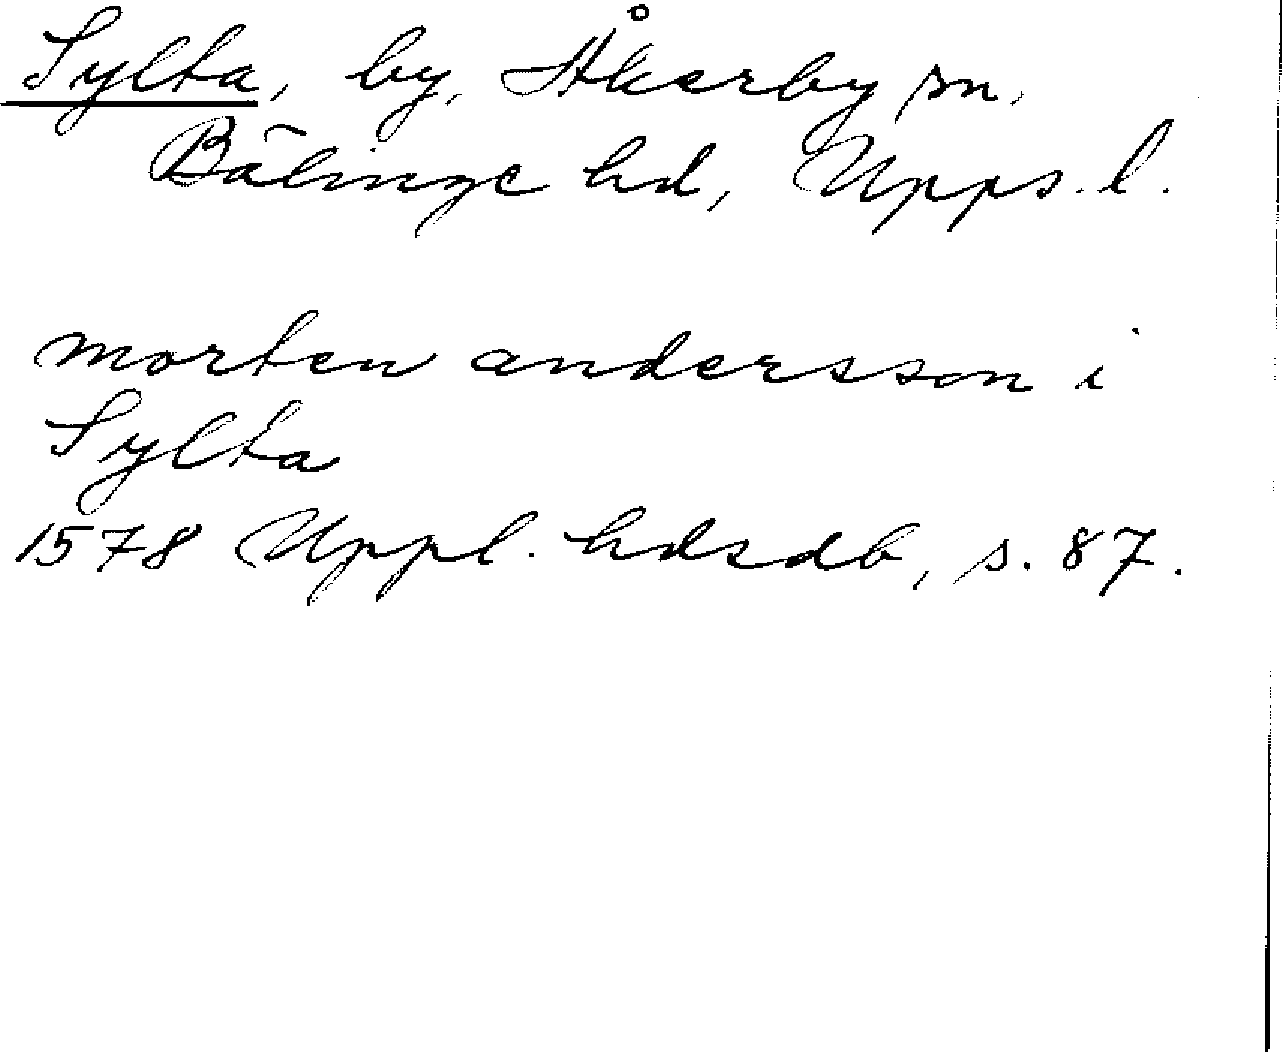 Sylta, by, Åkerby sn,
Bälinge hd, Upps. l.
morten andersson i
Sylta
1578 Uppl. hdsdb, s. 87.